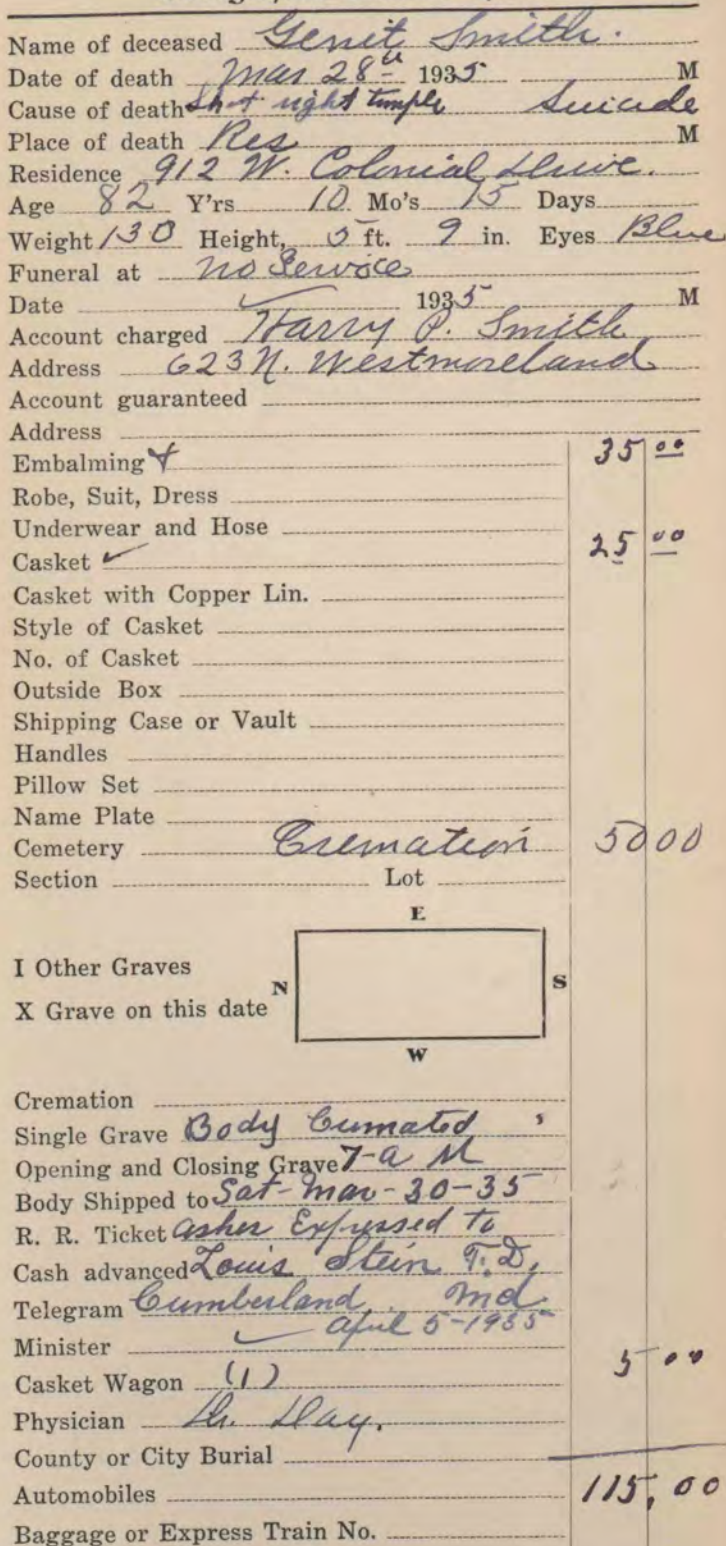 Name of deceased Gerrit Smith.
Date of death Mar 28th 1935 M
Cause of death Shot right temple Suicide
Place of death Res M
Residence 912 W. Colonial Drive.
Age 82 Y'rs 10 Mo's 15 Days
Weight 130 Height, 5 ft. 9 in. Eyes Blue
Funeral at no Service
Date 1935 M
Account charged Harry P. Smith
Address 623 N. Westmoreland
Account guaranteed
Address
Embalming 35 00
Robe, Suit, Dress
Underwear and Hose
Casket ✓ 25 00
Casket with Copper Lin.
Style of Casket
No. of Casket
Outside Box
Shipping Case or Vault
Handles
Pillow Set
Name Plate
Cemetery Cremation 50 00
Section Lot
E
I Other Graves
N S
X Grave on this date
W
Cremation
Single Grave Body Cremated
Opening and Closing Grave 7-a M
Body Shipped to Sat-Mar-30-35
R. R. Ticket ashes Expressed to
Cash advanced Louis Stein F.D,
Telegram Cumberland. Md
april 5-1935
Minister
Casket Wagon (1) 5 00
Physician Dr. Day.
County or City Burial
Automobiles 115,00
Baggage or Express Train No.